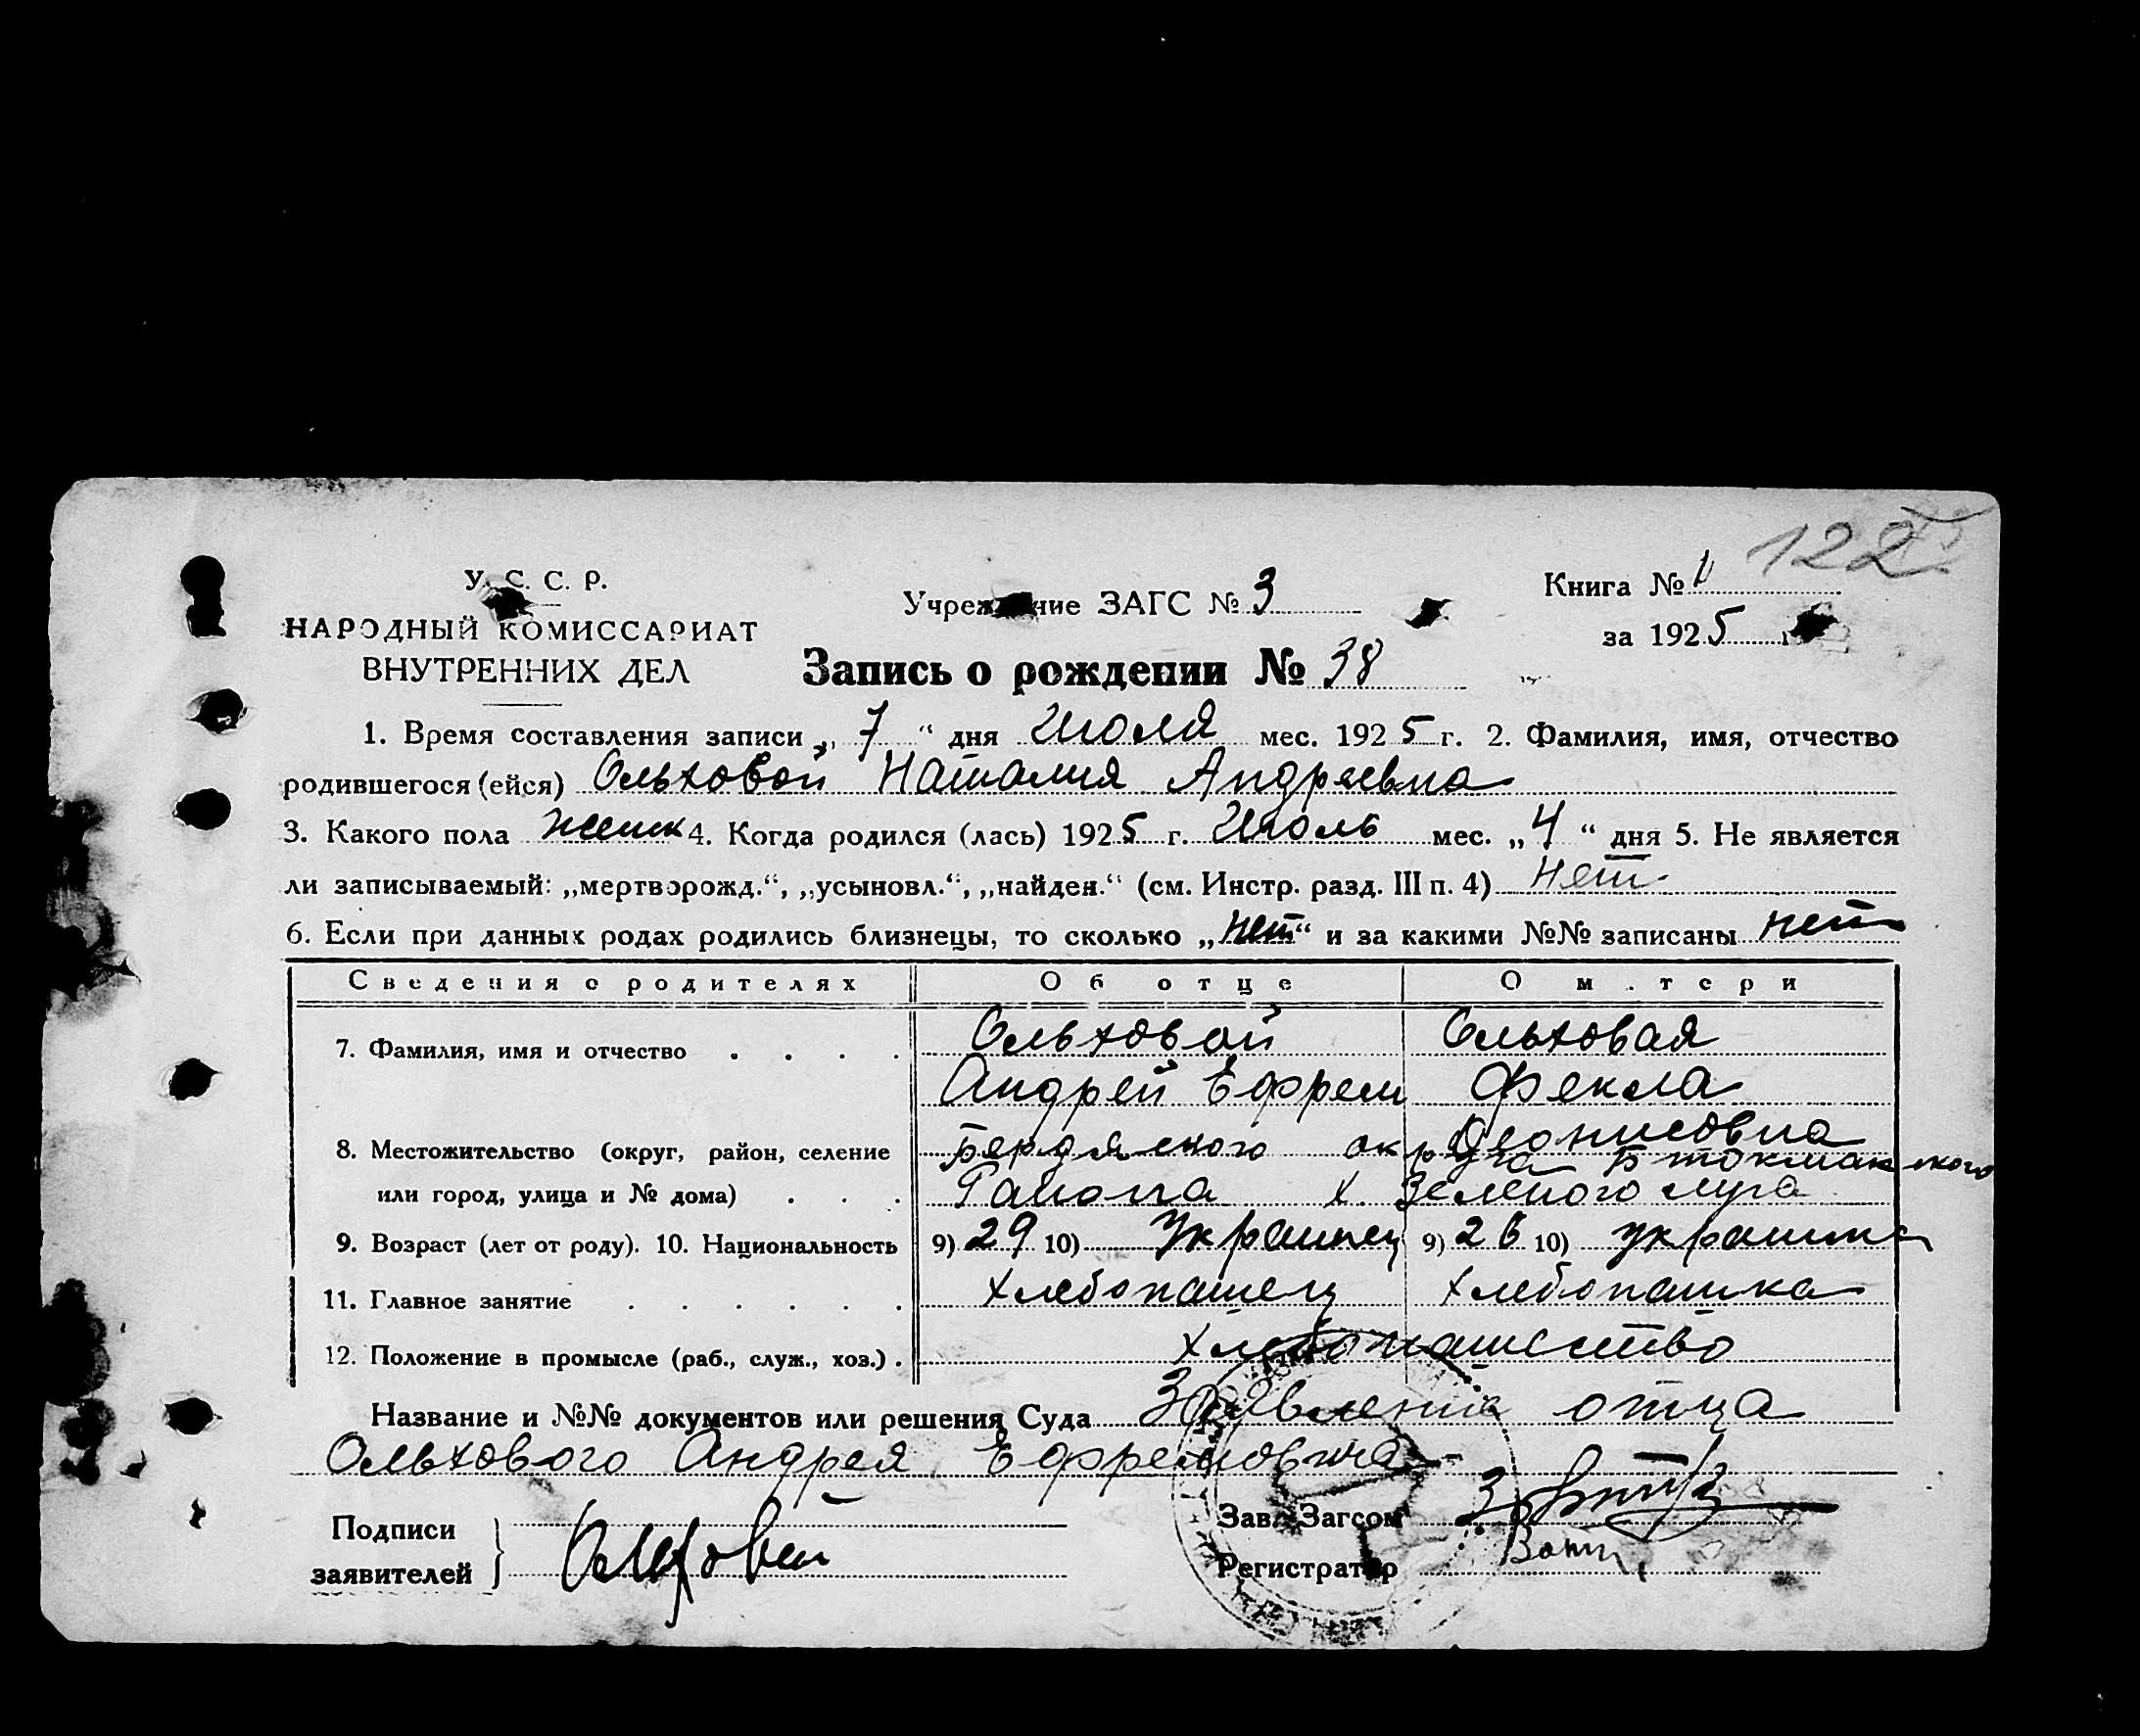 122
У. С. С. Р.
НАРОДНЫЙ КОМИССАРИАТ
ВНУТРЕННИХ ДЕЛ
Учреждение ЗАГС № 3
Книга №
за 1925 г.
Запись о рождении № 38
1. Время составления записи „ 7 “ дня Июля мес. 1925 г. 2. Фамилия, имя, отчество
родившегося (ейся) Ольховой Наталия Андреевна
3. Какого пола женск 4. Когда родился (лась) 1925 г. Июль мес. „ 4 “ дня 5. Не является
ли записываемый: „мертворожд.“, „усыновл.“, „найден.“ (см. Инстр. разд. III п. 4) нет
6. Если при данных родах родились близнецы, то сколько „нет“ и за какими №№ записаны нет
Сведения о родителях Об отце О м.тери
7. Фамилия, имя и отчество . . . . Ольховой Ольховая
Андрей Ефрем Фекла
Деонисовна
8. Местожительство (округ, район, селение Бердянского округа Б токмакского
или город, улица и № дома) . . . Района х. Зеленого луга
9. Возраст (лет от роду). 10. Национальность 9) 29 10) Украинец 9) 26 10) украинка
11. Главное занятие . . . . . . Хлебопашец Хлебопашка
12. Положение в промысле (раб., служ., хоз.) . Хлебопашество
Название и №№ документов или решения Суда Заявление отца
Ольхового Андрея Ефремовича
Подписи
заявителей } Ольховой
Зав. Загсом
Регистратор